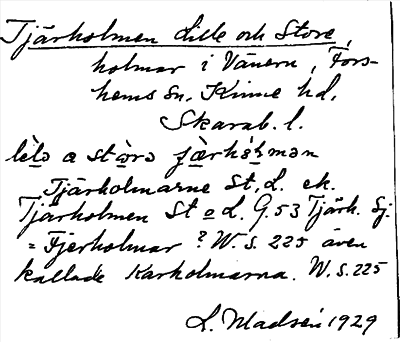 Tjärholmen Lille och Store,
holmar i Vänern, Fors-
hems sn, Kinne hd,
Skarab. l.
lìlə a stòrə fæ̀rhólmən
Tjärholmarne St, L. ek.
Tjärholmen St o L. G. 53 Tjärh. Sj.
= Fjerholmar? W. S. 225 även
kallade Karholmarna. W. S. 225
L. Madsén 1929